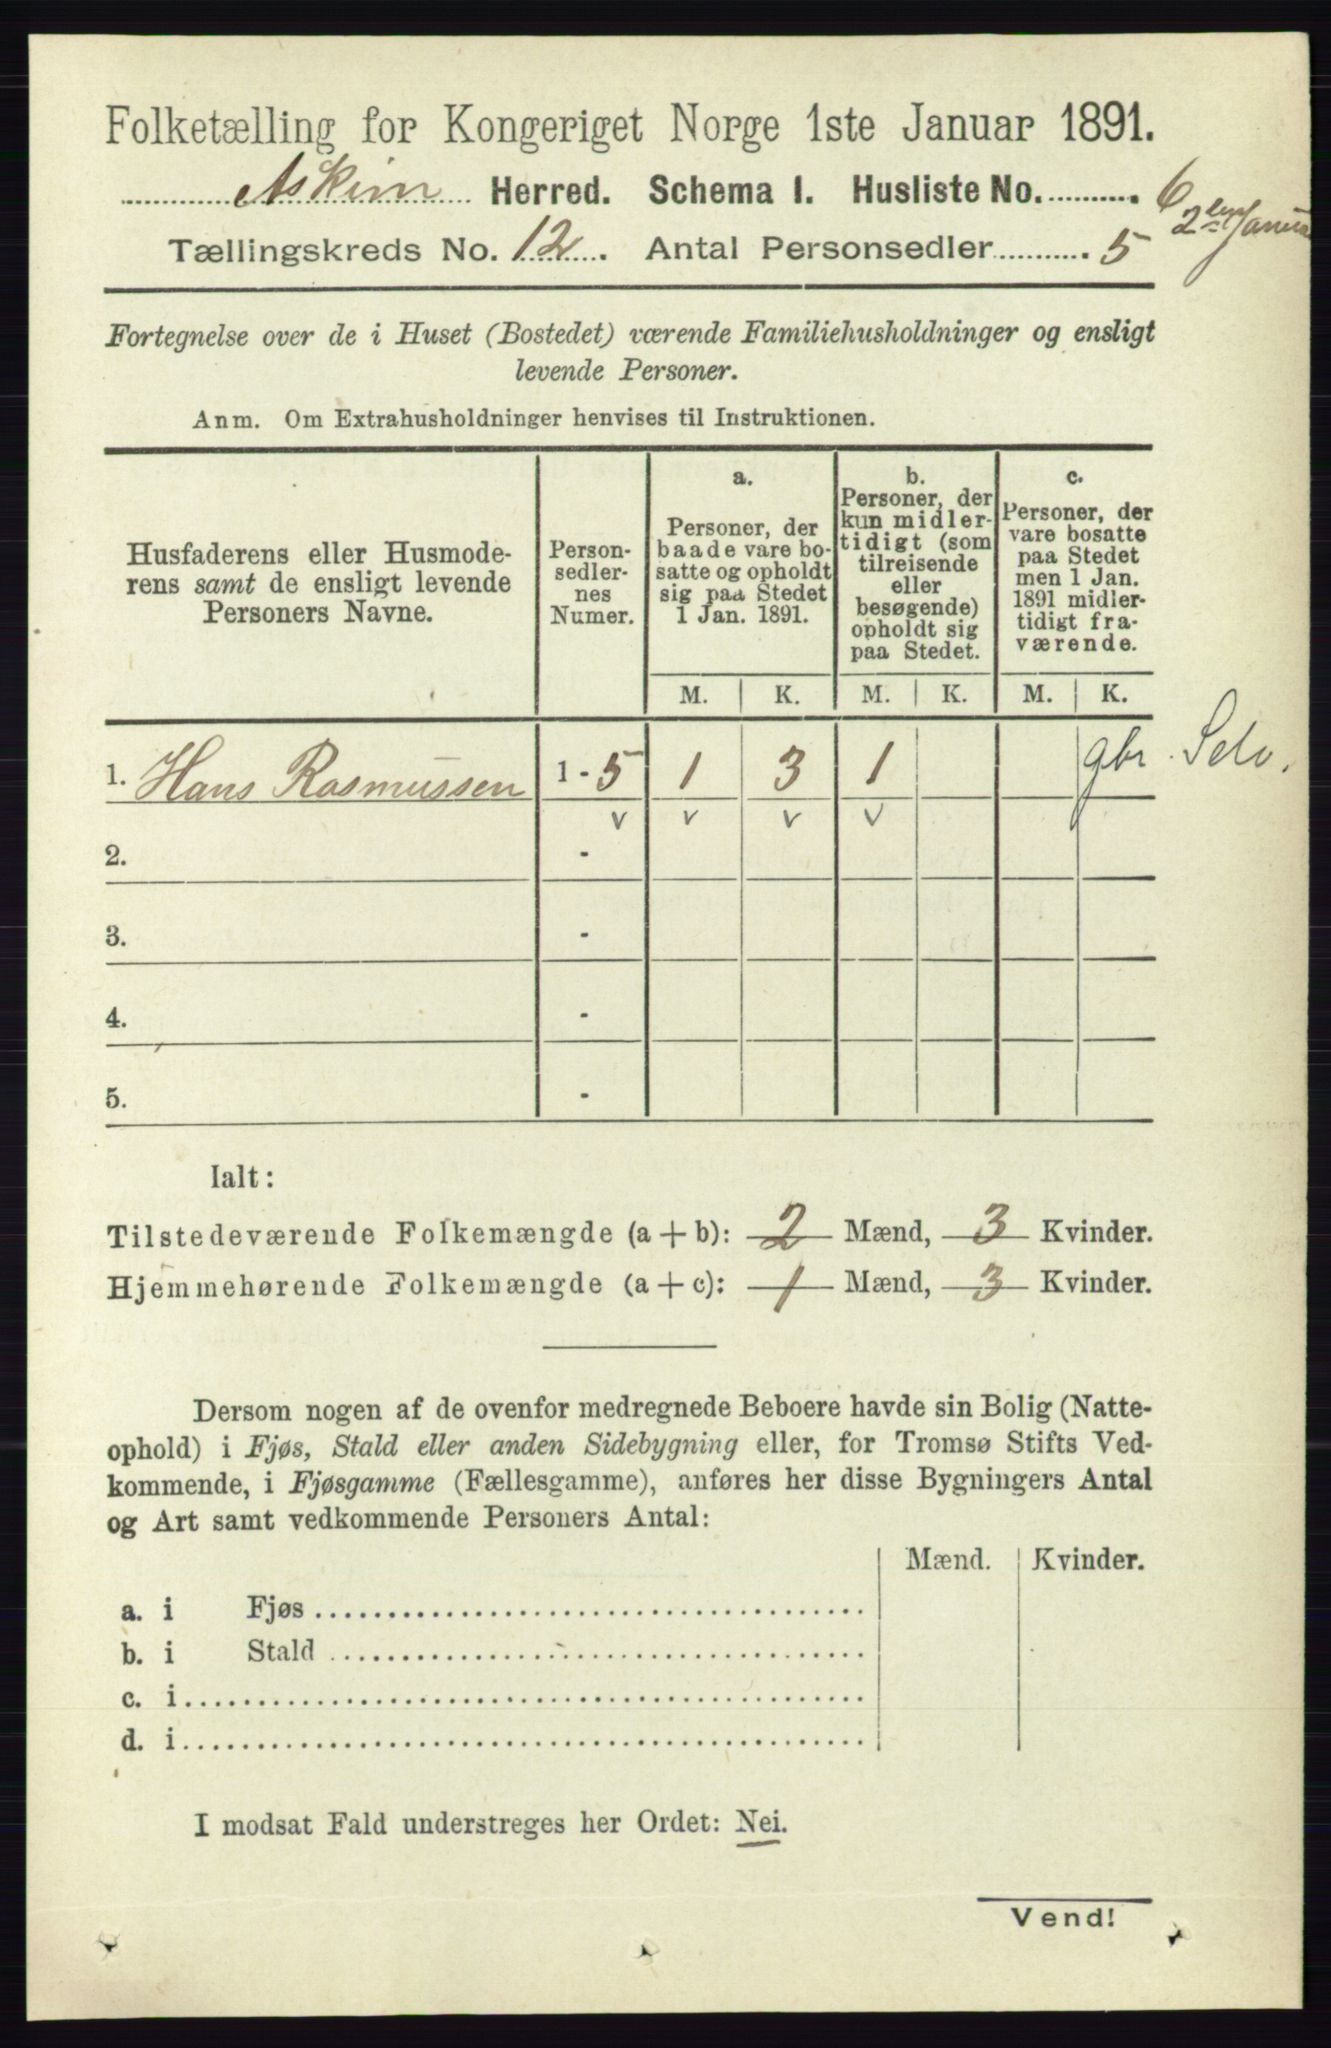 Folketælling for Kongeriget Norge 1ste Januar 1891.
Askim Herred. Schema 1. Husliste No. 6
2den Janua
Tællingskreds No. 12. Antal Personsedler 5
Fortegnelse over de i Huset (Bostedet) værende Familiehusholdninger og ensligt
levende Personer.
Anm. Om Extrahusholdninger henvises til Instruktionen.
Husfaderens eller Husmode-
rens samt de ensligt levende
Personers Navne.
Person-
sedler-
nes
Numer.
a.
Personer, der
baade vare bo-
satte og opholdt
sig paa Stedet
1 Jan. 1891.
b.
Personer, der
kun midler-
tidigt (som
tilreisende
eller
besøgende)
opholdt sig
paa Stedet.
c.
Personer, der
vare bosatte
paa Stedet
men 1 Jan.
1891 midler-
tidigt fra-
værende.
M. K. M. K. M. K.
1. Hans Rasmussen 1 - 5 1 3 1 gbr. Selv.
v v v v
2. -
3. -
4. -
5. -
Ialt:
Tilstedeværende Folkemængde (a + b): 2 Mænd, 3 Kvinder.
Hjemmehørende Folkemængde (a + c): 1 Mænd, 3 Kvinder.
Dersom nogen af de ovenfor medregnede Beboere havde sin Bolig (Natte-
ophold) i Fjøs, Stald eller anden Sidebygning eller, for Tromsø Stifts Ved-
kommende, i Fjøsgamme (Fællesgamme), anføres her disse Bygningers Antal
og Art samt vedkommende Personers Antal:
Mænd. Kvinder.
a. i Fjøs
b. i Stald
c. i
d. i
I modsat Fald understreges her Ordet: Nei.
Vend!